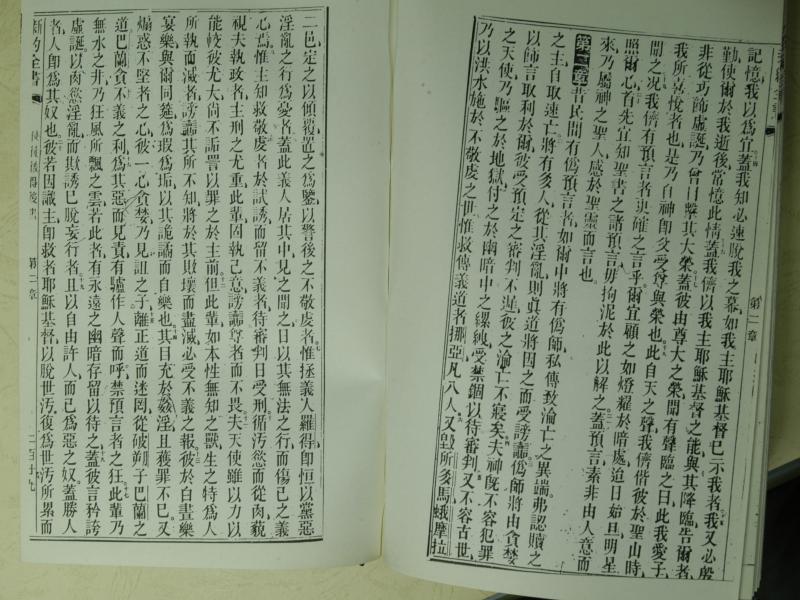 記憶我以爲宜蓋我知必速脫我之幕如我主耶穌基督已示我者我又必殷
勤使爾於我逝後常憶此情蓋我儕以我主耶穌基督之能與其降臨告爾者
非從巧飾虛誕乃曾目擊其大榮蓋彼由尊大之榮聞有聲臨之曰此我愛子
我所喜悅者也是乃自神卽父受尊與榮也此自天之聲我儕偕彼於聖山時
聞之况我儕有預言者更確之言乎爾宜顧之如燈耀於暗處迨日始旦明星
照爾心首先宜知聖書之諸預言毋拘泥於此以解之蓋預言素非由人意而
來乃屬神之聖人感於聖靈而言也
第二章 昔民間有僞預言者如爾中將有僞師私傳致淪亡之異端弗認贖之
之主自取速亡將有多人從其淫亂則眞道將因之而受謗讟僞師將由貪婪
以飾言取利於爾彼受預定之審判不遲彼之淪亡不寢矣夫神旣不容犯罪
之天使乃驅之於地獄付之於幽暗中之縲絏受禁錮以待審判又不容古世
乃以洪水施於不敬虔之世惟救傳義道者挪亞凡八人又昔所多馬蛾摩拉
第二章
二邑定之以傾覆置之爲鑒以警後之不敬虔者惟拯義人羅得卽恒以黨惡
淫亂之行爲憂者蓋此義人居其中見之聞之日以其無法之行而傷已之義
心焉惟主知救敬虔者於試誘而留不義者待審判日受刑循汚慾而從肉藐
視夫執政者主刑之尤重此輩因執己意謗讟尊者而不畏夫天使雖以力以
能較彼尤大尚不詬詈以罪之於主前但此輩如本性無知之獸生之特爲人
所執而滅者謗讟其所不知將於其敗壞而盡滅必受不義之報彼於白晝樂
宴樂與爾同筵爲瑕爲垢以其詭譎而自樂也其目充於姦淫且獲罪不已又
煽惑不堅者之心彼一心貪婪乃見詛之子離正道而迷罔從破朔子巴蘭之
道巴蘭貪不義之利爲其惡而見責有驢作人聲而呼禁預言者之狂此輩乃
無水之井乃狂風所飄之雲若此者有永遠之幽暗存留以待之蓋彼言矜誇
虛誕以肉慾淫亂而欺誘已脫妄行者且以自由許人而己爲惡之奴蓋勝人
者人卽爲其奴也彼若因識主卽救者耶穌基督以脫世汚復爲世汚所累而
新約全書
彼得後書
第二章
二百卅九